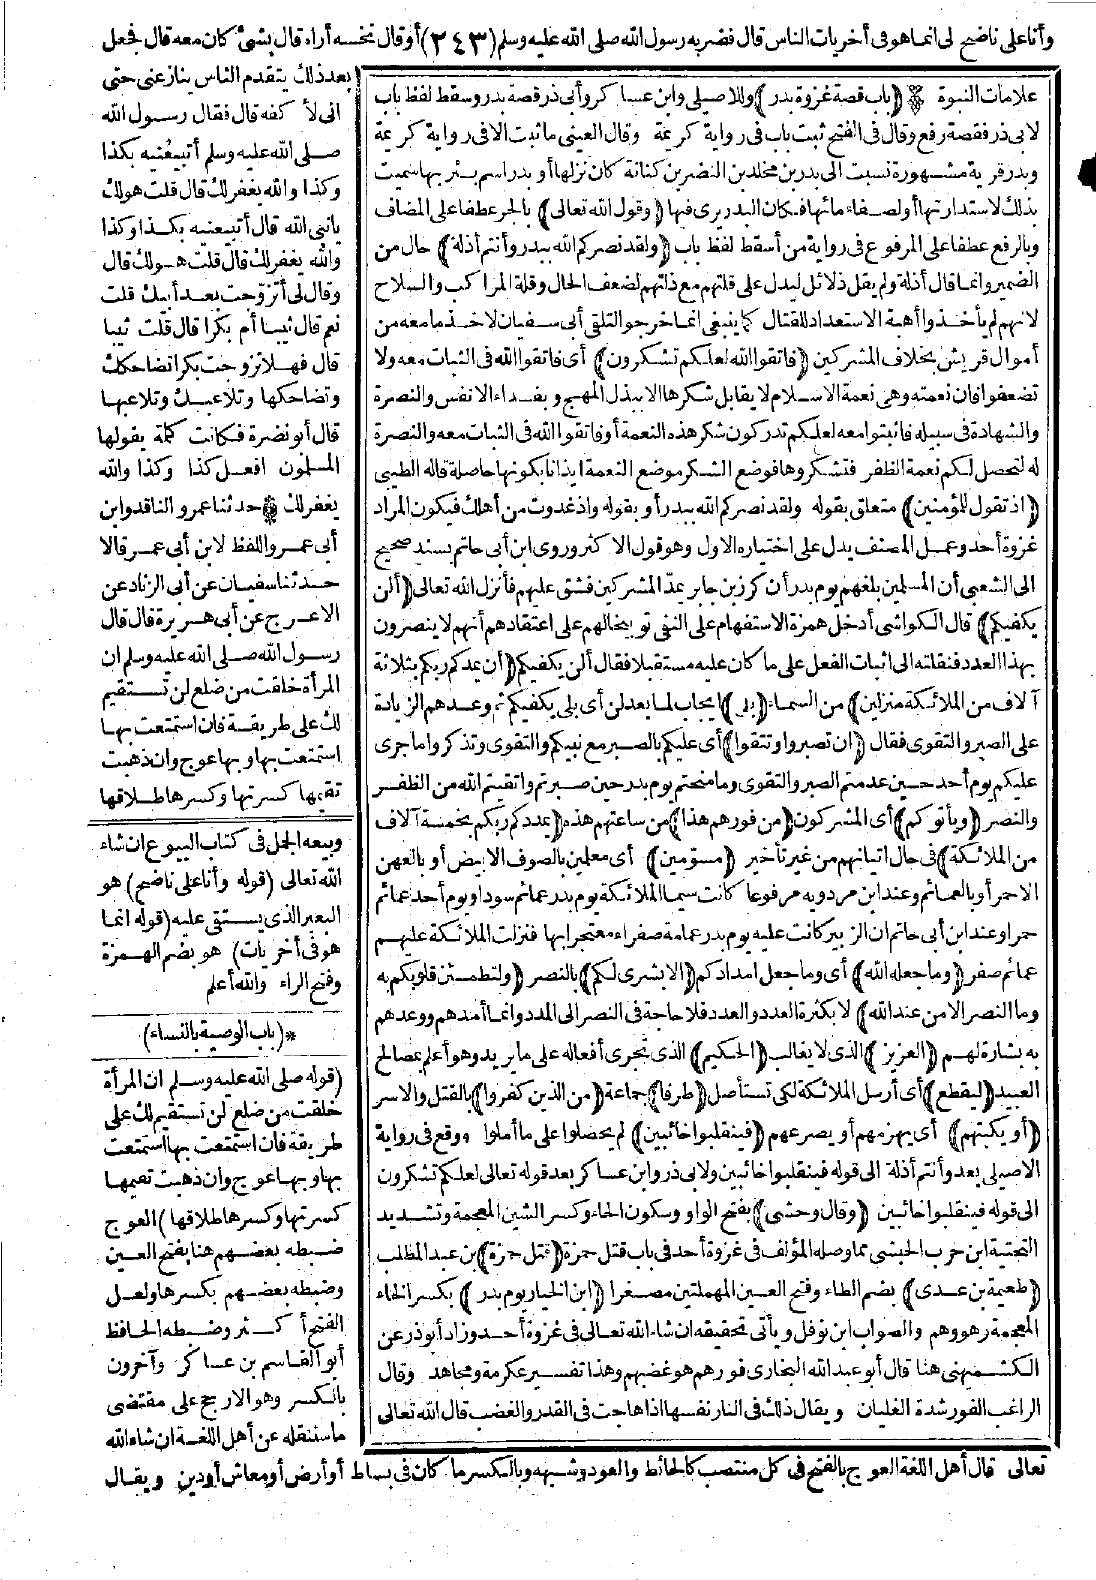 وأنا على ناضح لى انما هو فى أخريات الناس قال فضربه رسول الله صلى الله عليه وسلم (٢٤٣) أو قال نخسه أراه قال بشئ كان معه قال فجعل
بعد ذلك يتقدم الناس ينازعنى حتى
انى لأ كفه قال فقال رسول الله
صلى الله عليه وسلم أتبيعنيه بكذا
وكذا والله يغفر لك قال قلت هو لك
يا نبى الله قال أتبيعنيه بكذا وكذا
والله يغفر لك قال قلت هو لك قال
وقال لى أتزوجت بعد أبيك قلت
نعم قال ثيبا أم بكرا قال قلت ثيبا
قال فهلا تزوجت بكرا تضاحكك
وتضاحكها وتلاعبك وتلاعبها
قال أبو نضرة فكانت كلمة يقولها
المسلمون افعل كذا وكذا والله
يغفر لك ۞ حدثنا عمرو الناقد وابن
أبى عمر واللفظ لابن أبى عمر قالا
حدثنا سفيان عن أبى الزناد عن
الاعرج عن أبى هريرة قال قال
رسول الله صلى الله عليه وسلم ان
المرأة خلقت من ضلع لن تستقيم
لك على طريقة فان استمتعت بها
استمتعت بها وبها عوج وان ذهبت
تقيمها كسرتها وكسرها طلاقها
وبيعه الجمل فى كتاب البيوع ان شاء
الله تعالى (قوله وأنا على ناضح) هو
البعير الذى يستقى عليه (قوله انما
هو فى أخريات) هو بضم الهمزة
وفتح الراء والله أعلم
*(باب الوصية بالنساء)
(قوله صلى الله عليه وسلم ان المرأة
خلقت من ضلع لن تستقيم لك على
طريقة فان استمتعت بها استمتعت
بها وبها عوج وان ذهبت تقيمها
كسرتها وكسرها طلاقها) العوج
ضبطه بعضهم هنا بفتح العين
وضبطه بعضهم بكسرها ولعل
الفتح أكثر وضبطه الحافظ
أبو القاسم بن عساكر وآخرون
بالكسر وهو الارجح على مقتضى
ما سننقله عن أهل اللغة ان شاء الله
علامات النبوة ۞ (باب قصة غزوة بدر) وللاصيلى وابن عساكر وأبى ذر قصة بدر وسقط لفظ باب
لابى ذر فقصة رفع وقال فى الفتح ثبت باب فى رواية كريمة وقال العينى ما ثبت الا فى رواية كريمة
وبدر قرية مشهورة نسبت الى بدر بن مخلد بن النضر بن كنانة كان نزلها أو بدر اسم بئر بها سميت
بذلك لاستدارتها أو لصفاء مائها فكان البدر يرى فيها (وقول الله تعالى) بالجر عطفا على المضاف
وبالرفع عطفا على المرفوع فى رواية من أسقط لفظ باب (ولقد نصركم الله ببدر وأنتم أذلة) حال من
الضمير وانما قال أذلة ولم يقل ذلائل ليدل على قلتهم مع ذلتهم لضعف الحال وقلة المراكب والسلاح
لانهم لم يأخذوا أهبة الاستعداد للقتال كما ينبغى انما خرجوا لتلقى أبى سفيان لاخذ ما معه من
أموال قريش بخلاف المشركين (فاتقوا الله لعلكم تشكرون) أى فاتقوا الله فى الثبات معه ولا
تضعفوا فان نعمته وهى نعمة الاسلام لا يقابل شكرها الا ببذل المهج وبفداء الانفس والنصرة
والشهادة فى سبيله فاثبتوا معه لعلكم تدركون شكر هذه النعمة أو فاتقوا الله فى الثبات معه والنصرة
له لتحصل لكم نعمة الظفر فتشكروها فوضع الشكر موضع النعمة ايذانا بكونها حاصلة قاله الطيبى
(اذ تقول للمؤمنين) متعلق بقوله ولقد نصركم الله ببدر أو بقوله واذ غدوت من أهلك فيكون المراد
غزوة أحد وعمل المصنف يدل على اختياره الاول وهو قول الاكثر وروى ابن أبى حاتم بسند صحيح
الى الشعبى أن المسلمين بلغهم يوم بدر أن كرز بن جابر يمدّ المشركين فشق عليهم فأنزل الله تعالى (ألن
يكفيكم) قال الكواشى أدخل همزة الاستفهام على النفى توبيخا لهم على اعتقادهم أنهم لا ينصرون
بهذا العدد فنقلته الى اثبات الفعل على ما كان عليه مستقبلا فقال ألن يكفيكم (أن يمدكم ربكم بثلاثة
آلاف من الملائكة منزلين) من السماء (بلى) ايجاب لما بعد لن أى بلى يكفيكم ثم وعدهم الزيادة
على الصبر والتقوى فقال (ان تصبروا وتتقوا) أى عليكم بالصبر مع نبيكم والتقوى وتذكروا ما جرى
عليكم يوم أحد حين عدمتم الصبر والتقوى وما منحتم يوم بدر حين صبرتم واتقيتم الله من الظفر
والنصر (ويأتوكم) أى المشركون (من فورهم هذا) من ساعتهم هذه (يمددكم ربكم بخمسة آلاف
من الملائكة) فى حال اتيانهم من غير تأخير (مسوّمين) أى معلمين بالصوف الابيض أو بالعهن
الاحمر أو بالعمائم وعند ابن مردويه مرفوعا كانت سيما الملائكة يوم بدر عمائم سودا ويوم أحد عمائم
حمرا وعند ابن أبى حاتم ان الزبير كانت عليه يوم بدر عمامة صفراء معتجرا بها فنزلت الملائكة عليهم
عمائم صفر (وما جعله الله) أى وما جعل امدادكم (الا بشرى لكم) بالنصر (ولتطمئن قلوبكم به
وما النصر الا من عند الله) لا بكثرة العدد والعدد فلا حاجة فى النصر الى المدد وانما أمدهم ووعدهم
به بشارة لهم (العزيز) الذى لا يغالب (الحكيم) الذى تجرى أفعاله على ما يريد وهو أعلم بمصالح
العبيد (ليقطع) أى أرسل الملائكة لكى تستأصل (طرفا) جماعة (من الذين كفروا) بالقتل والاسر
(أو يكبتهم) أى يهزمهم أو يصرعهم (فينقلبوا خائبين) لم يحصلوا على ما أملوا ووقع فى رواية
الاصيلى بعد وأنتم أذلة الى قوله فينقلبوا خائبين ولابى ذر وابن عساكر بعد قوله تعالى لعلكم تشكرون
الى قوله فينقلبوا خائبين (وقال وحشى) بفتح الواو وسكون الحاء وكسر الشين المعجمة وتشديد
التحتية ابن حرب الحبشى مما وصله المؤلف فى غزوة أحد فى باب قتل حمزة (قتل حمزة) بن عبد المطلب
(طعيمة بن عدى) بضم الطاء وفتح العين المهملتين مصغرا (ابن الخيار يوم بدر) بكسر الخاء
المعجمة وهو وهم والصواب ابن نوفل ويأتى تحقيقه ان شاء الله تعالى فى غزوة أحد وزاد أبو ذر عن
الكشميهنى هنا قال أبو عبد الله البخارى فورهم هو غضبهم وهذا تفسير عكرمة ومجاهد وقال
الراغب الفور شدة الغليان ويقال ذلك فى النار نفسها اذا هاجت فى القدر والغضب قال الله تعالى
تعالى قال أهل اللغة العوج بالفتح فى كل منتصب كالحائط والعود وشبهه وبالكسر ما كان فى بساط أو أرض أو معاش أو دين ويقال